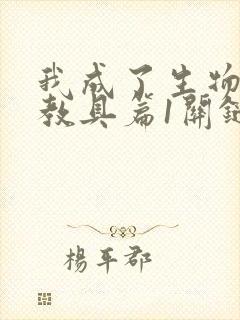 我成了生物
教具篇1關鍵
楊平郡